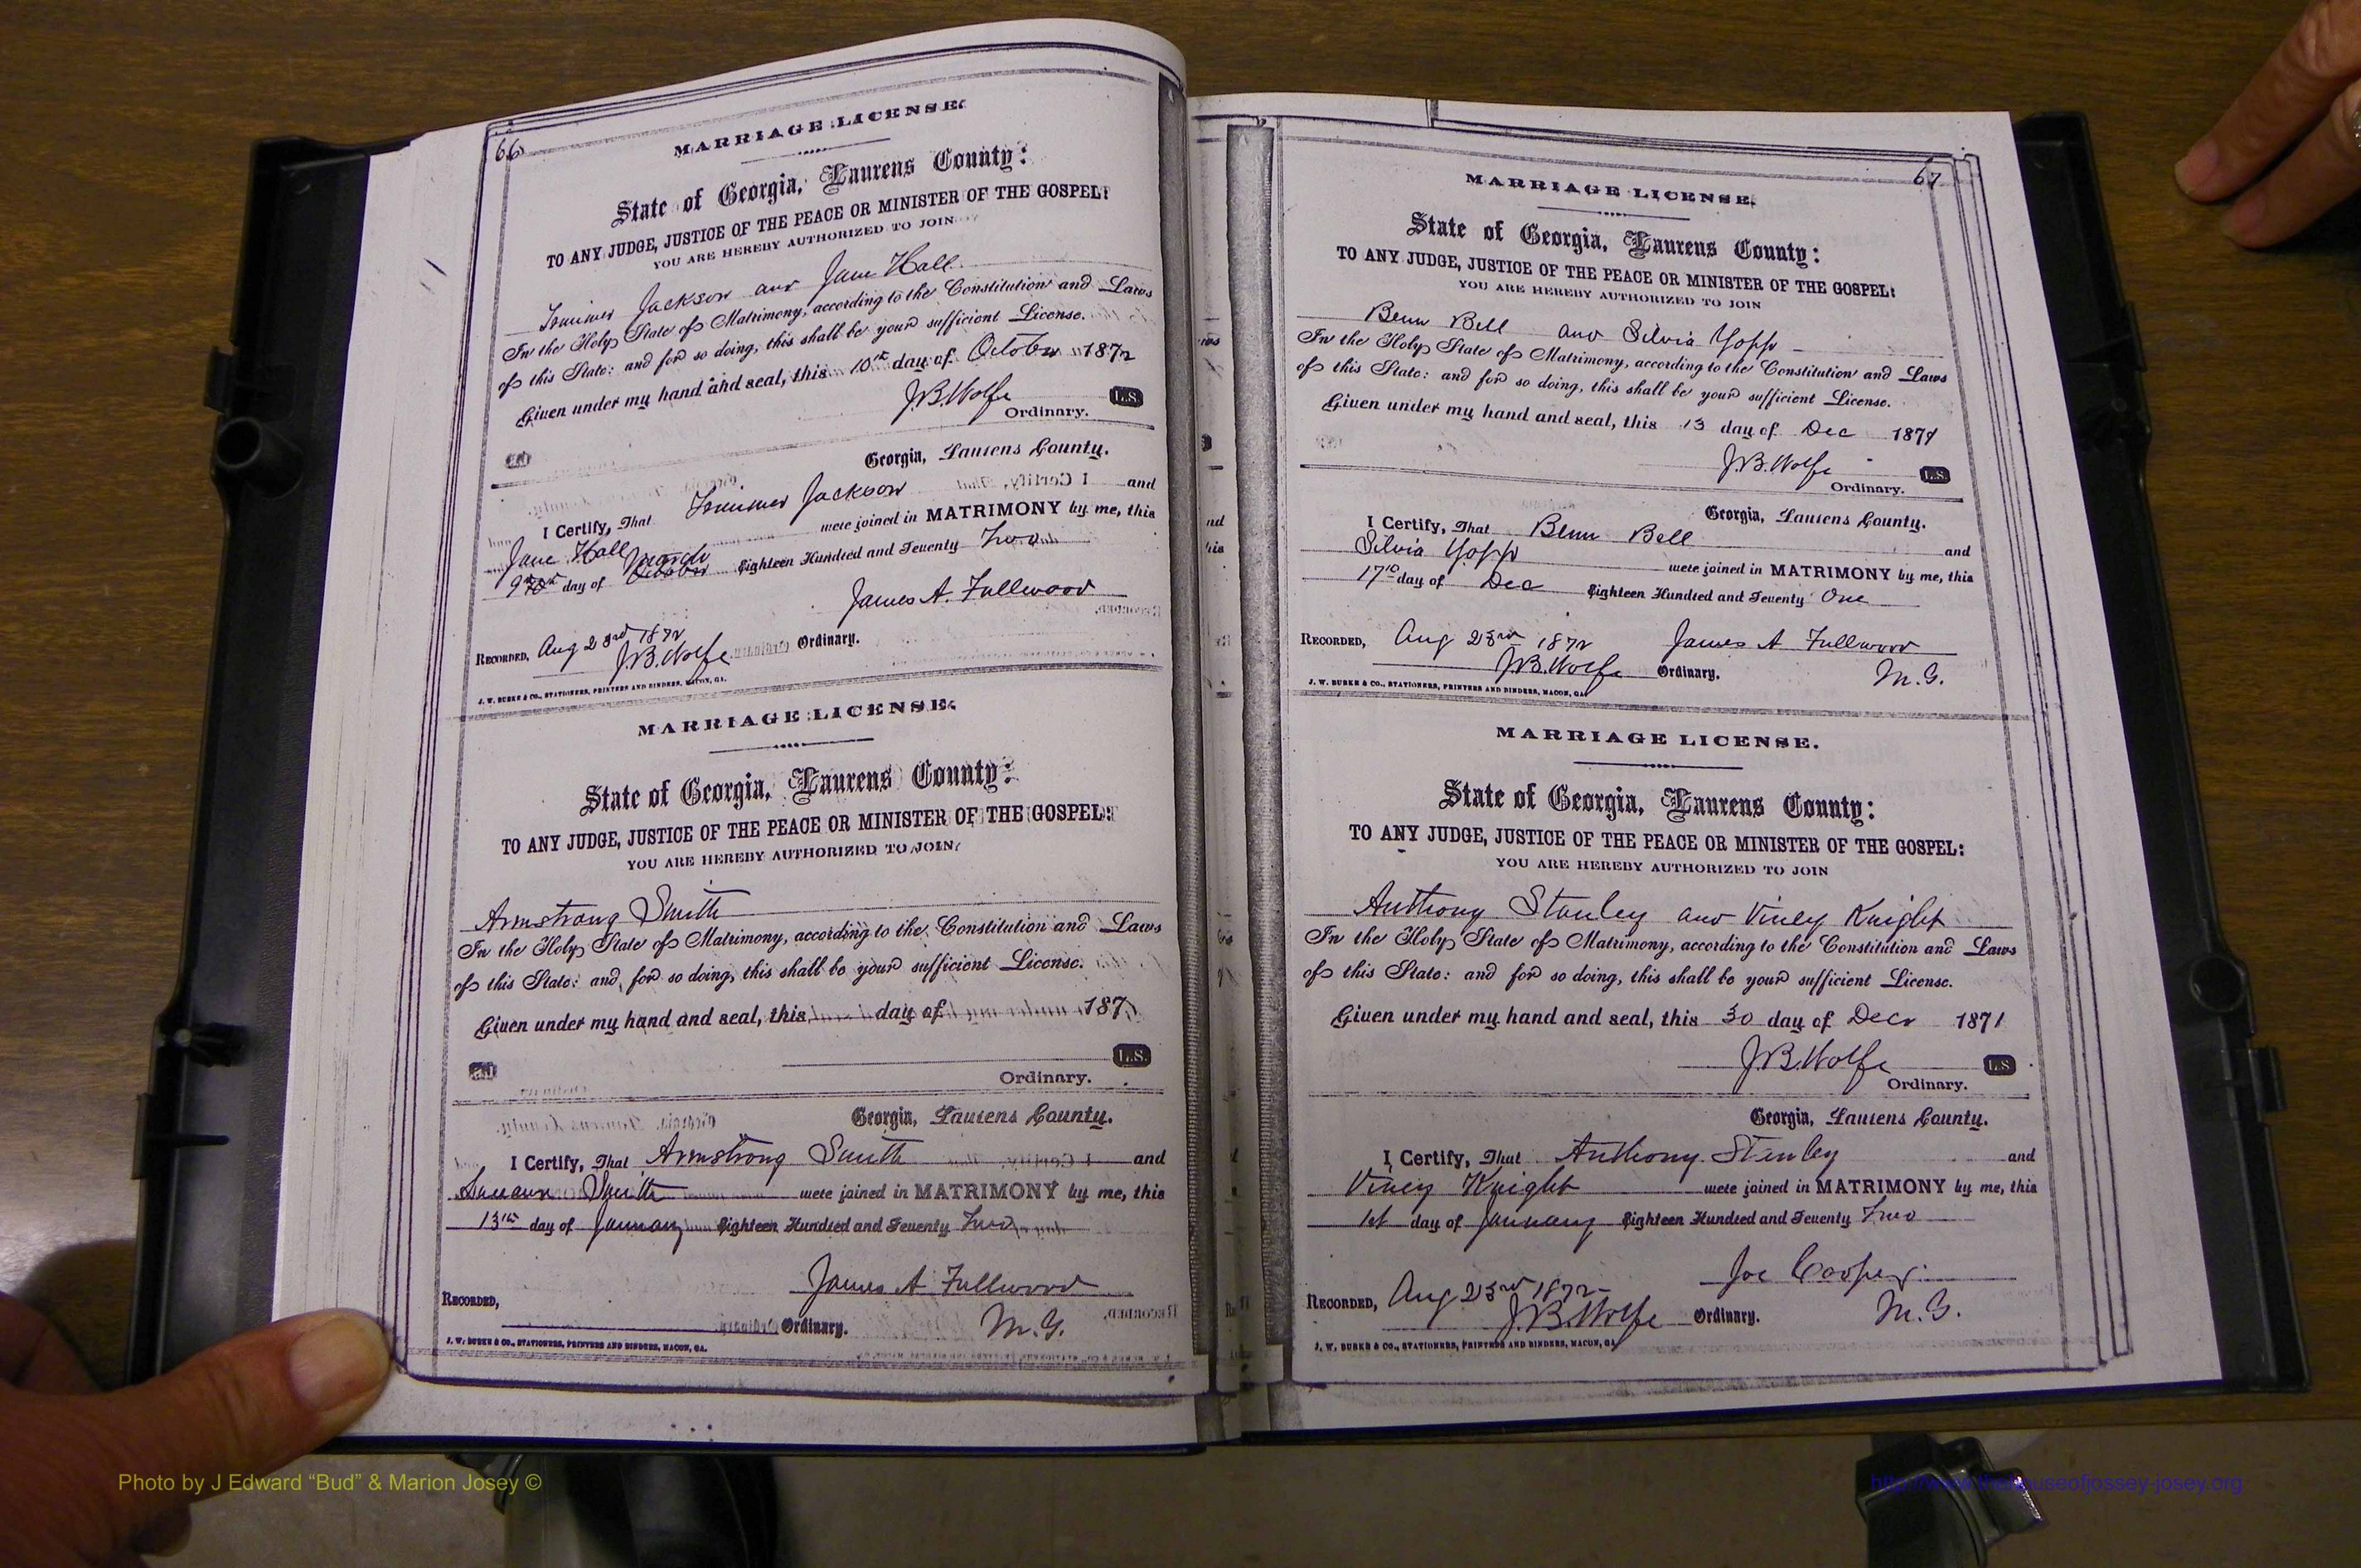 66
MARRIAGE LICENSE.
State of Georgia, Laurens County:
TO ANY JUDGE, JUSTICE OF THE PEACE OR MINISTER OF THE GOSPEL:
YOU ARE HEREBY AUTHORIZED TO JOIN
Jackson and Jane Hall
In the Holy State of Matrimony, according to the Constitution and Laws
of this State: and for so doing, this shall be your sufficient License.
Given under my hand and seal, this 10th day of October 1872
J.B. Wolfe L.S.
Ordinary.
Georgia, Laurens County.
I Certify, That Jackson and
Jane Hall were joined in MATRIMONY by me, this
9th day of March Eighteen Hundred and Seventy Two
James A. Fullwood
Recorded, Aug 23rd 1872
J.B. Wolfe Ordinary.
J. W. BURKE & CO., STATIONERS, PRINTERS AND BINDERS, MACON, GA.
MARRIAGE LICENSE.
State of Georgia, Laurens County:
TO ANY JUDGE, JUSTICE OF THE PEACE OR MINISTER OF THE GOSPEL:
YOU ARE HEREBY AUTHORIZED TO JOIN
Armstrong Smith
In the Holy State of Matrimony, according to the Constitution and Laws
of this State: and for so doing, this shall be your sufficient License.
Given under my hand and seal, this day of 187
L.S.
Ordinary.
Georgia, Laurens County.
I Certify, That Armstrong Smith and
Smith were joined in MATRIMONY by me, this
13th day of January Eighteen Hundred and Seventy Two
James A Fullwood
Recorded,
Ordinary. M.G.
J. W. BURKE & CO., STATIONERS, PRINTERS AND BINDERS, MACON, GA.
67
MARRIAGE LICENSE.
State of Georgia, Laurens County:
TO ANY JUDGE, JUSTICE OF THE PEACE OR MINISTER OF THE GOSPEL:
YOU ARE HEREBY AUTHORIZED TO JOIN
Benn Bell and Silvia Yopp
In the Holy State of Matrimony, according to the Constitution and Laws
of this State: and for so doing, this shall be your sufficient License.
Given under my hand and seal, this 13 day of Dec 1871
J.B. Wolfe L.S.
Ordinary.
Georgia, Laurens County.
I Certify, That Benn Bell and
Silvia Yopp were joined in MATRIMONY by me, this
17th day of Dec Eighteen Hundred and Seventy One
Recorded, Aug 23rd 1872 James A Fullwood
J.B. Wolfe Ordinary. M.G.
J. W. BURKE & CO., STATIONERS, PRINTERS AND BINDERS, MACON, GA.
MARRIAGE LICENSE.
State of Georgia, Laurens County:
TO ANY JUDGE, JUSTICE OF THE PEACE OR MINISTER OF THE GOSPEL:
YOU ARE HEREBY AUTHORIZED TO JOIN
Anthony Stanley and Viney Knight
In the Holy State of Matrimony, according to the Constitution and Laws
of this State: and for so doing, this shall be your sufficient License.
Given under my hand and seal, this 30 day of Decr 1871
J.B. Wolfe L.S.
Ordinary.
Georgia, Laurens County.
I Certify, That Anthony Stanley and
Viney Knight were joined in MATRIMONY by me, this
1st day of January Eighteen Hundred and Seventy Two
Joe Cooper
Recorded, Aug 23rd 1872
J.B. Wolfe Ordinary. M.G.
J. W. BURKE & CO., STATIONERS, PRINTERS AND BINDERS, MACON, GA.
Photo by J Edward “Bud” & Marion Josey ©
http://www.thehouseofjossey-josey.org